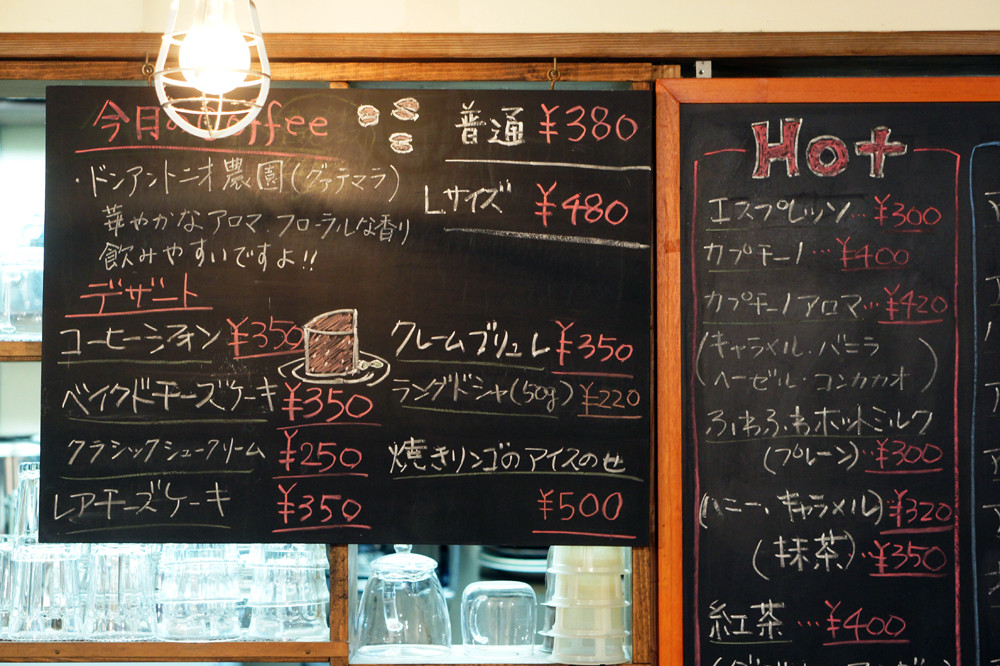 今日のCoffee
・ドンアントニオ農園(グァテマラ)
華やかなアロマ、フローラルな香り
飲みやすいですよ!!
普通 ¥380
Lサイズ ¥480
デザート
コーヒーシフォン ¥350
ベイクドチーズケーキ ¥350
クラシックシュークリーム ¥250
レアチーズケーキ ¥350
クレームブリュレ ¥350
ラングドシャ(50g) ¥220
焼きリンゴのアイスのせ
¥500
Hot
エスプレッソ…¥300
カプチーノ…¥400
カプチーノアロマ…¥420
(キャラメル・バニラ
ヘーゼル・コンカカオ)
ふわふわホットミルク
(プレーン)…¥300
(ハニー、キャラメル)…¥320
(抹茶)…¥350
紅茶…¥400